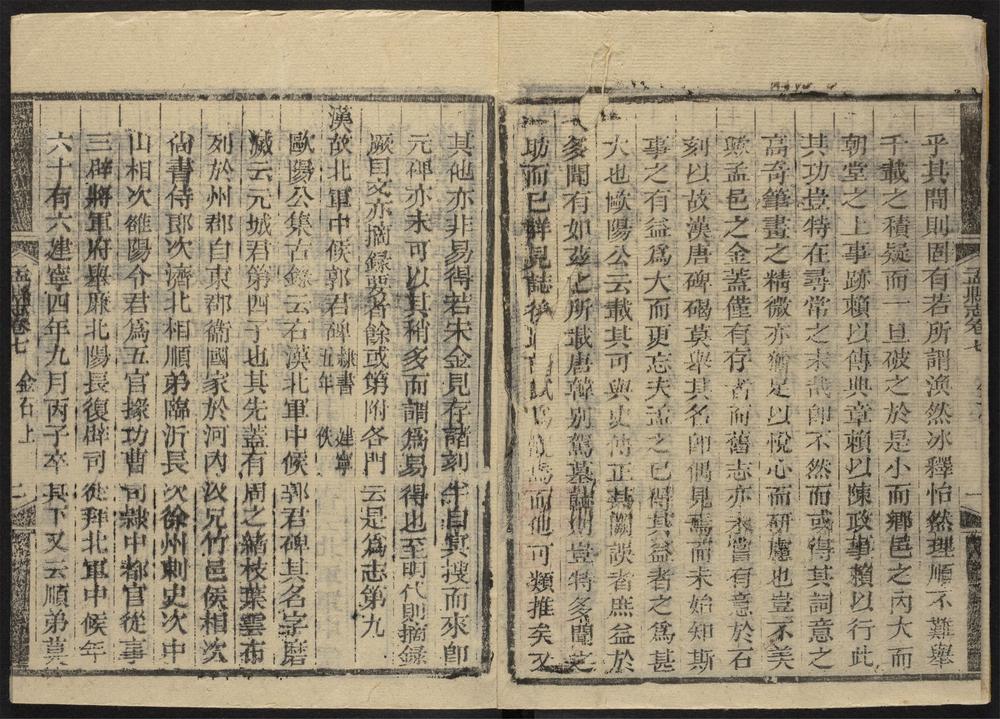 孟縣志卷七
乎其間則固有若所謂渙然冰釋怡然理順不難舉
千載之積疑而一旦破之於是小而鄉邑之內大而
朝堂之上事跡賴以傳典章賴以陳政事賴以行此
其功豈特在尋常之末哉卽不然而或得其詞意之
高奇筆畫之精微亦猶足以悅心而研慮也豈不美
歟孟邑之金蓋僅有存者而舊志亦未嘗有意於石
刻以故漢唐碑碣莫舉其名卽偶見焉而未始知斯
事之有益爲大而更忘夫孟之已得其益者之爲甚
大也歐陽公云載其可與史傳正其闕誤者庶益於
多聞有如茲化所載唐韓別駕墓誌則豈特多聞之
一助而已詳見誌後 而他可類推矣又
其他亦非易得若宋金見存諸刻半自冥搜而來卽
元碑亦未可以其稍多而謂爲易得也至明代則摘錄
厥目文亦摘錄要者餘或第附各門云是爲志第九
漢故北軍中候郭君碑隸書 建寧五年 佚
歐陽公集古錄云右漢北軍中候郭君碑其名字磨
滅云元城君第四子也其先蓋有周之緒枝葉雲布
列於州郡自東郡衞國家於河內汲兄竹邑侯相次
尙書侍郎次濟北相順弟臨沂長次徐州刺史次中
山相次雒陽令君爲五官掾功曹司隸中都官從事
三辟將軍府舉廉北陽長復辟司徒拜北軍中候年
六十有六建寧四年九月丙子卒其下又云順弟莫
孟縣志卷七 金石上 二